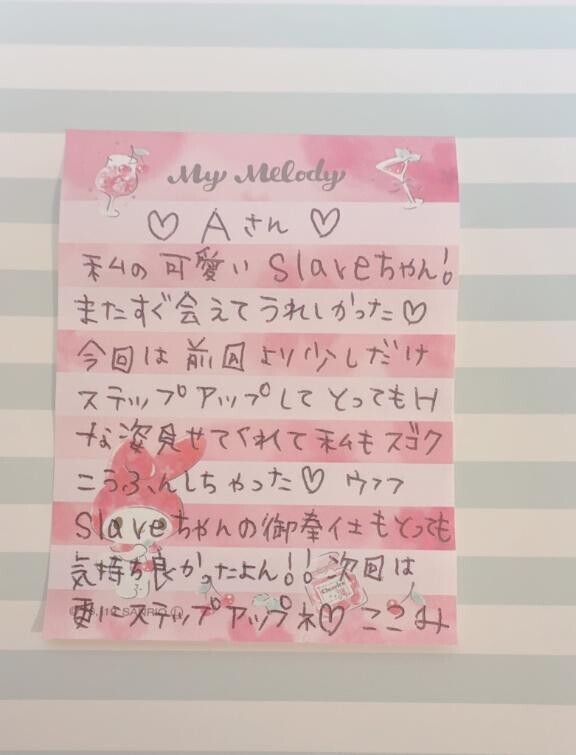 My Melody
♡ Aさん ♡
私の可愛い Slaveちゃん!
またすぐ会えてうれしかった♡
今回は前回より少しだけ
ステップアップしてとってもH
な姿見せてくれて私もスゴク
こうふんしちゃった♡ ウフフ
Slaveちゃんの御奉仕もとっても
気持ち良かったよん!! 次回は
更にステップアップネ♡ ここみ
SANRIO